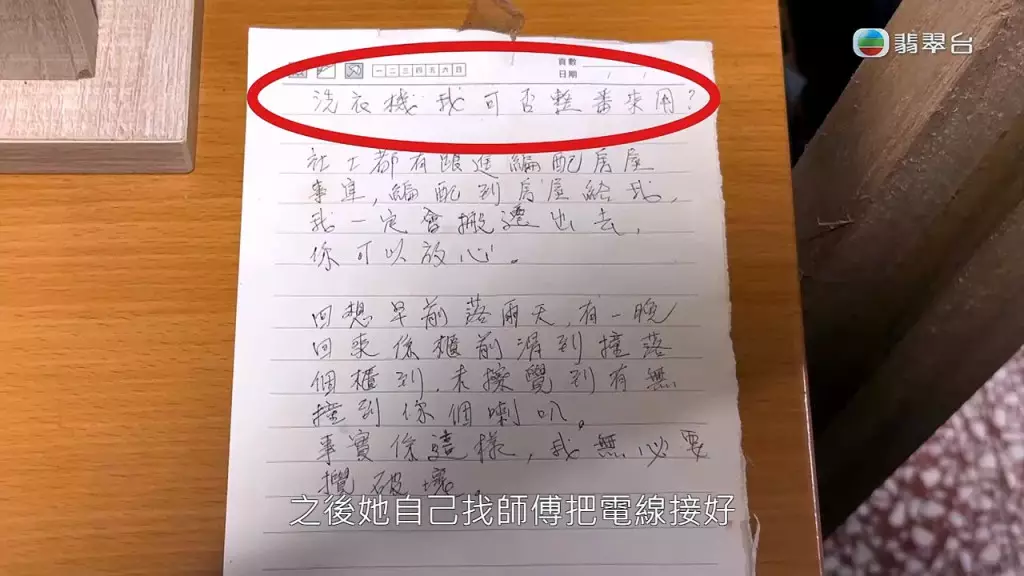 翡翠台
一二三四五六日
頁數
日期 / /
洗衣機我可否整番來用?
社工都有跟進編配房屋
事宜,編配到房屋給我,
我一定會搬遷出去,
你可以放心。
回想早前落雨天,有一晚
回來係櫃前滑到撞落
個櫃到,未擦覺到有無
撞到你個喇叭。
事實係這樣,我無必要
攪破壞
之後她自己找師傅把電線接好